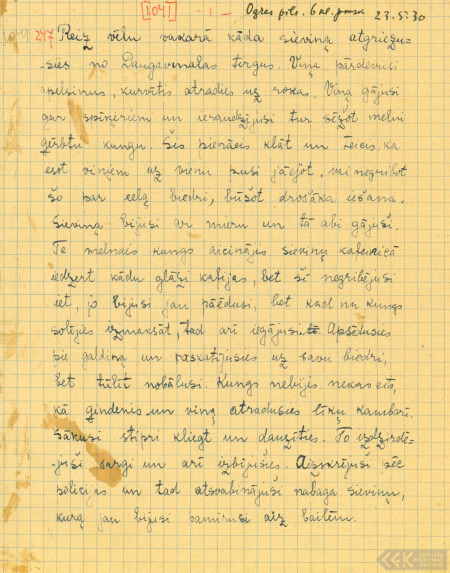 1041 -1- Ogres pils. 6 kl. pmsk 23.5.30
1041 247 Reiz vēlu vakarā kāda sieviņa atgriezu-
sies no Daugavmalas tirgus. Viņa pārdevusi
apelsinus, kurvītis atradies uz rokas. Viņa gājusi
gar spīķeriem un ieraudzījusi tur sēžot melni
ģērbtu kungu. Šis pienācis klāt un teicis, ka
esot viņiem uz vienu pusi jāejot, vai negribot
šo par ceļa biedri, būšot drošāka iešana.
Sieviņa bijusi ar mieru un tā abi gājuši.
Te melnais kungs aicinājis sieviņu kafejnīcā
iedzert kādu glāzi kafijas, bet šī negribējusi
iet, jo bijusi jau paēdusi, bet kad nu kungs
solījies izmaksāt, tad arī iegājusi. Apsēdusies
pie galdiņa un paskatījusies uz savu biedri,
bet tūlīt nobālusi. Kungs nebijis nekas cits,
kā ģindenis un viņa atradusies līķu kambarī.
Sākusi stipri kliegt un dauzīties. To izdzirdē-
juši sargi un arī izbijušies. Aizskrējuši pēc
policijas un tad atsvabinājuši nabaga sieviņu,
kuŗa jau bijusi pamirusi aiz bailēm.
LATVIEŠU FOLKLORAS KRĀTUVE